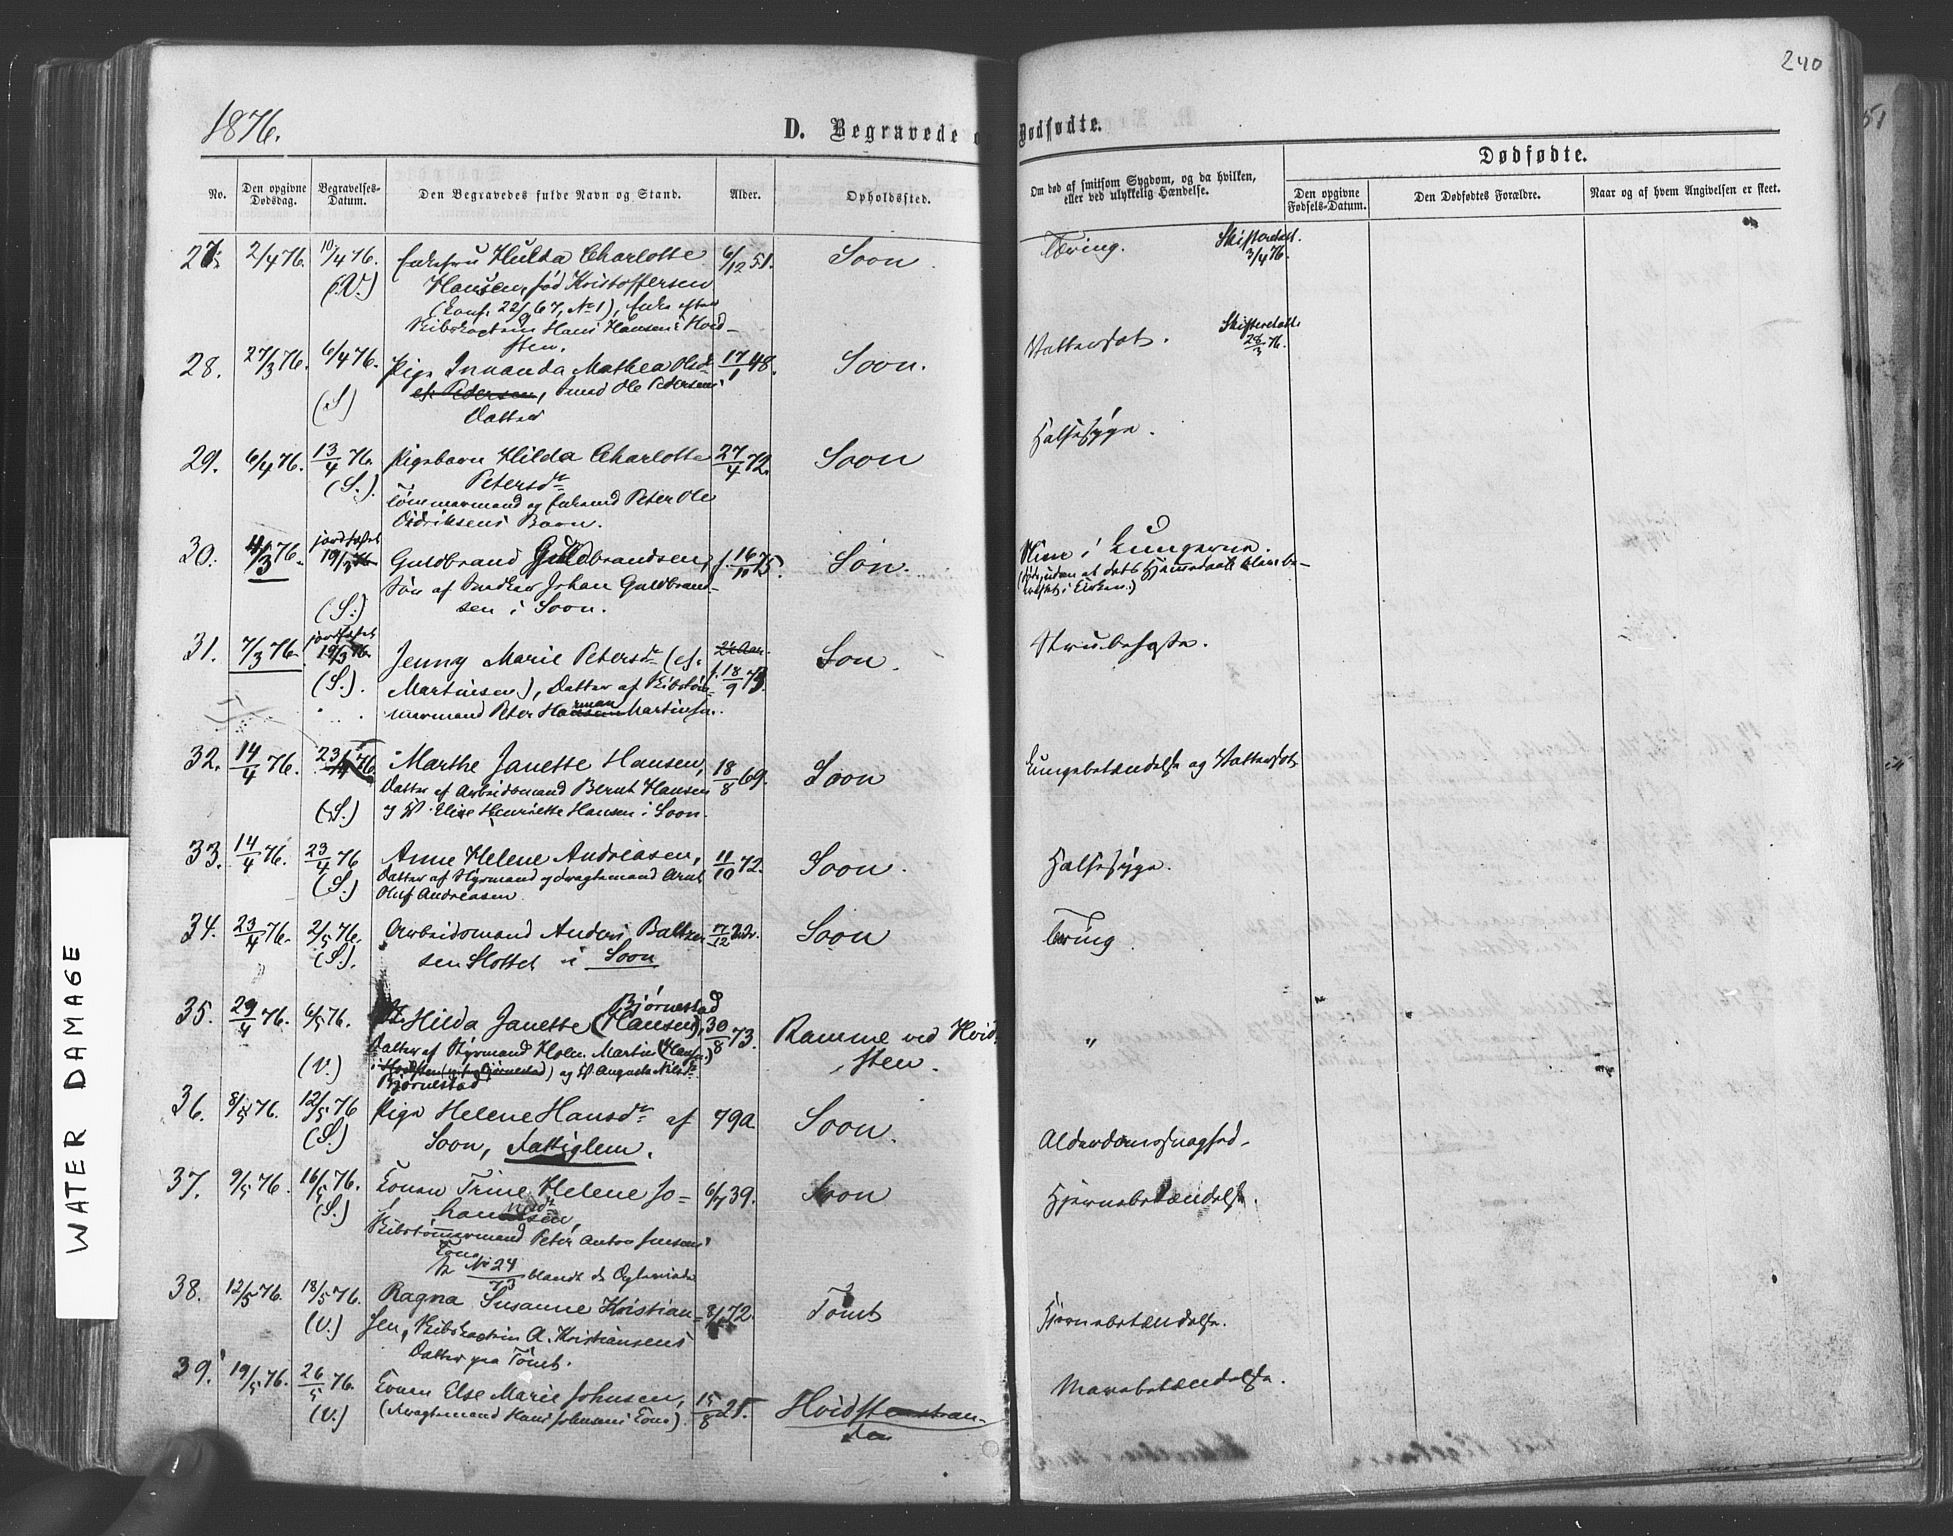 1876.
D. Begravede o
Dødfødte.
240
51
No.
Den opgivne Dødsdag.
Begravelses-Datum.
Den Begravedes fulde Navn og Stand.
Alder.
Opholdssted.
Om død af smitsom Sygdom, og da hvilken,
eller ved ulykkelig Hændelse.
Dødfødte.
Den opgivne Fødsels-Datum.
Den Dødfødtes Forældre.
Naar og af hvem Angivelsen er skeet.
27. 2/4 76. 10/4 76. Enkefru Hulda Charlotte 6/12 51. Soon. Tæring. Skifteretsat.
(V.) Hansen, fød Kristoffersen 3/4 76.
(Konf. 22/9 67, No 1), Enke efter
Hans Hansen i Hvid-
sten.
28. 27/3 76. 6/4 76. Pige Mathea 17/1 48. Soon. Vattersot. 28/3 76.
(S) Ole Pedersens
Datter
29. 6/4 76. 13/4 76. Pigebarn Hilda Charlotte 27/4 72. Soon Halsesyge.
(S.). Petersdr
Tømmermand og Enkemand Peter Ole
Didriksens Barn.
30. 4/3 76. jordfæstet 19/3 76 Guldbrand Guldbrandsen, f. 16/11 75. Son. Sliim i Lungerne.
(S.) Søn af Snedker Johan Guldbrand-
sen i Soon.
31. 7/3 76. jordfæstet 19/3 76. Jenny Marie Petersdr (ef. f. 18/9 73. Son. Strubehoste.
(S.). Martinsen), Datter af Skibstøm-
mermand Peter Herman Martinsen.
32. 14/4 76. 23/4 76. Marthe Janette Hansen, 18/8 69. Soon Lungebetændelse og Vattersot
(S.) Datter af Arbeidsmand Bernt Hansen
og H. Elise Henriette Hansen i Soon.
33. 14/4 76. 23/4 76 Anne Helene Andreasen, 11/10 72. Soon. Halsesyge.
(S.) Datter af Styrmand og Fragtemand Arnt
Oluf Andreasen
34. 23/4 76. 2/5 76. Arbeidsmand Anders Baltzer- Soon Tæring
(S). sen Slottet i Soon
35. 29/4 76. 6/5 76. Hilda Janette (Hansen), Bjørnestad 30/8 73. Ramme ved Hvid- "
(V.) Datter af Styrmand Martin (Hansen) sten.
og H. Augusta Nilsdr
Bjørnestad
36. 8/5 76. 12/5 76 Pige Helene Hansdr af 79a Soon. Alderdomssvaghed.
(S.) Soon, Fattiglem.
37. 9/5 76. 16/5 76. Konen Trine Helene Jo- 6/7 39. Soon Hjernebetændelse.
(S.)
Skibstømmermand Peter Anton Jensens
Kone
No 24/73 blandt de
38. 12/5 76. 18/5 76. Ragna Susanne Kristian- 72. Tomb Hjernebetændelse.
(V.) sen, Skibskaptein A. Kristiansens
Datter paa Tomb.
39. 19/5 76. 26/5 76. Konen Else Marie Johnsen, 15/8 Mavebetændelse.
(V.) (Fragtemand Hans Johnsens Kone).
WATER DAMAGE